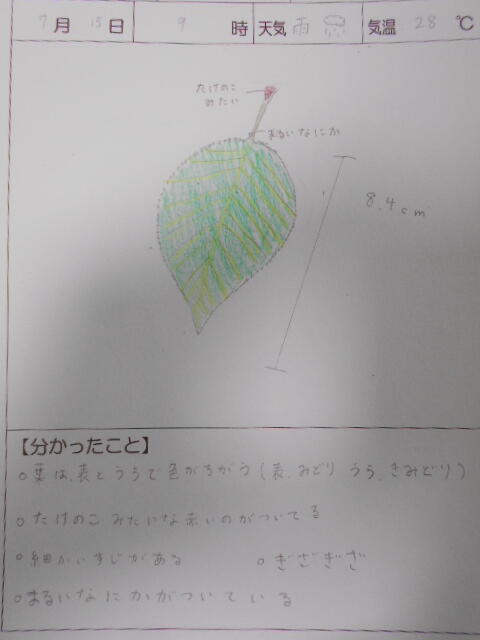 7月 15日 9時 天気 雨 気温 28℃
たけのこ
みたい
まるいなにか
8.4cm
【分かったこと】
○葉は、表とうらで色がちがう(表、みどり うら、きみどり)
○たけのこみたいな赤いのがついてる
○細かいすじがある ○ぎざぎざ
○まるいなにかがついている